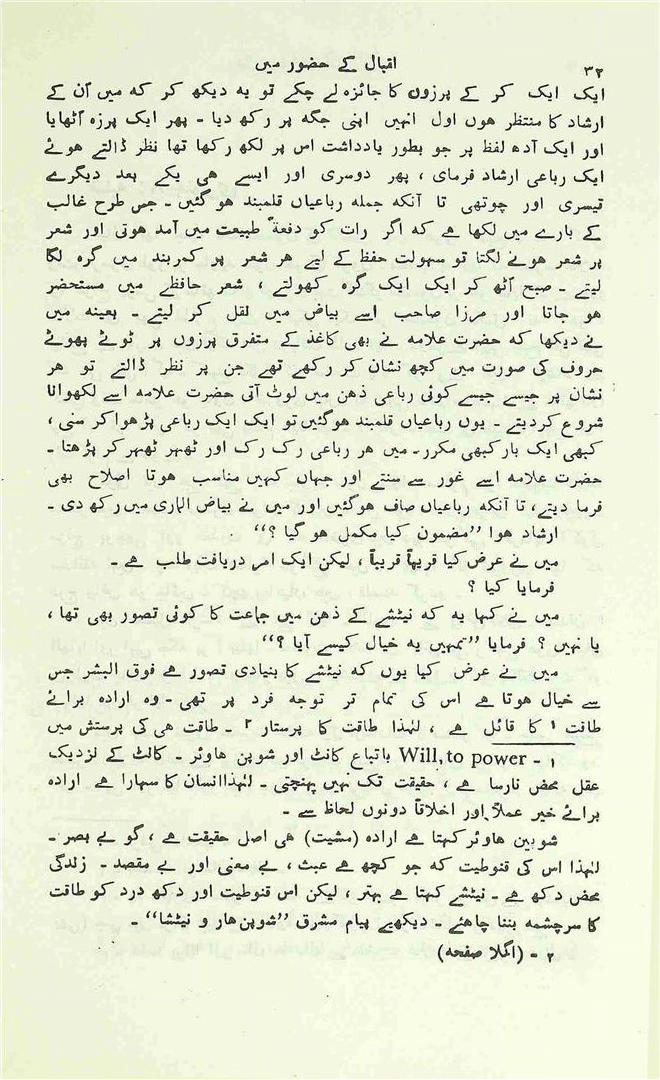 ۳۲
اقبال کے حضور میں
ایک ایک کر کے پرزوں کا جائزہ لے چکے تو یہ دیکھ کر کہ میں اُن کے
ارشاد کا منتظر ہوں اول انہیں اپنی جگہ پر رکھ دیا ۔ پھر ایک پرزہ اُٹھایا
اور ایک آدھ لفظ پر جو بطور یادداشت اس پر لکھ رکھا تھا نظر ڈالتے ہوئے
ایک رباعی ارشاد فرمای ، پھر دوسری اور ایسے ہی یکے بعد دیگرے
تیسری اور چوتھی تا آنکہ جملہ رباعیاں قلمبند ہو گئیں ۔ جس طرح غالب
کے بارے میں لکھا ہے کہ اگر رات کو دفعۃً طبیعت میں آمد ہوتی اور شعر
پر شعر ہونے لگتا تو سہولت حفظ کے لیے ہر شعر پر کمر بند میں گرہ لگا
لیتے ۔ صبح اُٹھ کر ایک ایک گرہ کھولتے ، شعر حافظے میں مستحضر
ہو جاتا اور مرزا صاحب اسے بیاض میں نقل کر لیتے ۔ بعینہ میں
نے دیکھا کہ حضرت علامہ نے بھی کاغذ کے متفرق پرزوں پر ٹوٹے پھوٹے
حروف کی صورت میں کچھ نشان کر رکھے تھے جن پر نظر ڈالتے تو ہر
نشان پر جیسے جیسے کوئی رباعی ذہن میں لوٹ آتی حضرت علامہ اسے لکھوانا
شروع کر دیتے ۔ یوں رباعیاں قلمبند ہو گئیں تو ایک ایک رباعی پڑھوا کر سنی ،
کبھی ایک بار کبھی مکرر ۔ میں ہر رباعی رک رک اور ٹھہر ٹھہر کر پڑھتا ۔
حضرت علامہ اسے غور سے سنتے اور جہاں کہیں مناسب ہوتا اصلاح بھی
فرما دیتے ، تا آنکہ رباعیاں صاف ہو گئیں اور میں نے بیاض الماری میں رکھ دی ۔
ارشاد ہوا ”مضمون کیا مکمل ہو گیا ؟“
میں نے عرض کیا قریباً قریباً ، لیکن ایک امر دریافت طلب ہے ۔
فرمایا کیا ؟
میں نے کہا یہ کہ نیٹشے کے ذہن میں جماعت کا کوئی تصور بھی تھا ،
یا نہیں ؟ فرمایا ”تمہیں یہ خیال کیسے آیا ؟“
میں نے عرض کیا یوں کہ نیٹشے کا بنیادی تصور ہے فوق البشر جس
سے خیال ہوتا ہے اس کی تمام تر توجہ فرد پر تھی ۔ وہ ارادہ برائے
طاقت ۱ کا قائل ہے ، لہٰذا طاقت کا پرستار ۲ ۔ طاقت ہی کی پرستش میں
۱ ۔ Will, to power باتباع کانٹ اور شوپن ہاوئر ۔ کانٹ کے نزدیک
عقل محض نارسا ہے ، حقیقت تک نہیں پہنچتی ۔ لہٰذا انسان کا سہارا ہے ارادہ
برائے خیر عملاً اور اخلاقاً دونوں لحاظ سے ۔
شوپین ہاوئر کہتا ہے ارادہ (مشیت) ہی اصل حقیقت ہے ، گو بے بصر ۔
لہٰذا اس کی قنوطیت کہ جو کچھ ہے عبث ، بے معنی اور بے مقصد ۔ زندگی
محض دکھ ہے ۔ نیٹشے کہتا ہے بہتر ، لیکن اس قنوطیت اور دکھ درد کو طاقت
کا سرچشمہ بننا چاہئے ۔ دیکھیے پیام مشرق ”شوپن ہار و نیٹشا“ ۔
۲ ۔ (اگلا صفحہ)